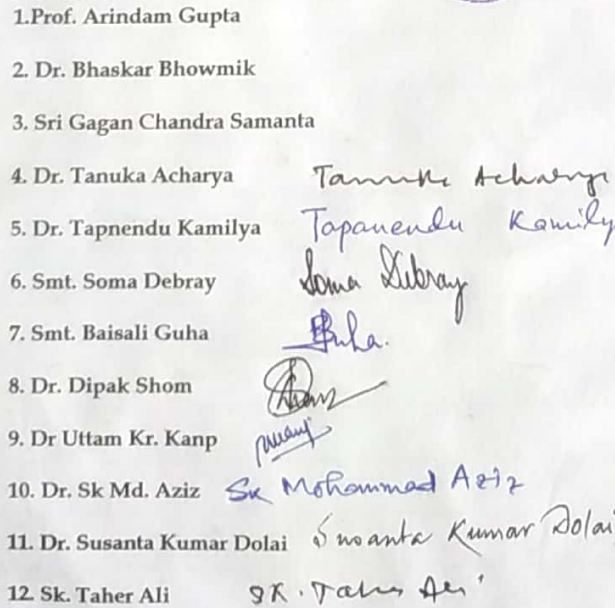 1.Prof. Arindam Gupta
2. Dr. Bhaskar Bhowmik
3. Sri Gagan Chandra Samanta
4. Dr. Tanuka Acharya Tanuka Acharya
5. Dr. Tapnendu Kamilya Tapanendu Kamily
6. Smt. Soma Debray Soma Debray
7. Smt. Baisali Guha BGuha.
8. Dr. Dipak Shom
9. Dr Uttam Kr. Kanp
10. Dr. Sk Md. Aziz Sk Mohammad Aziz
11. Dr. Susanta Kumar Dolai Susanta Kumar Dolai
12. Sk. Taher Ali SK. Taher Ali